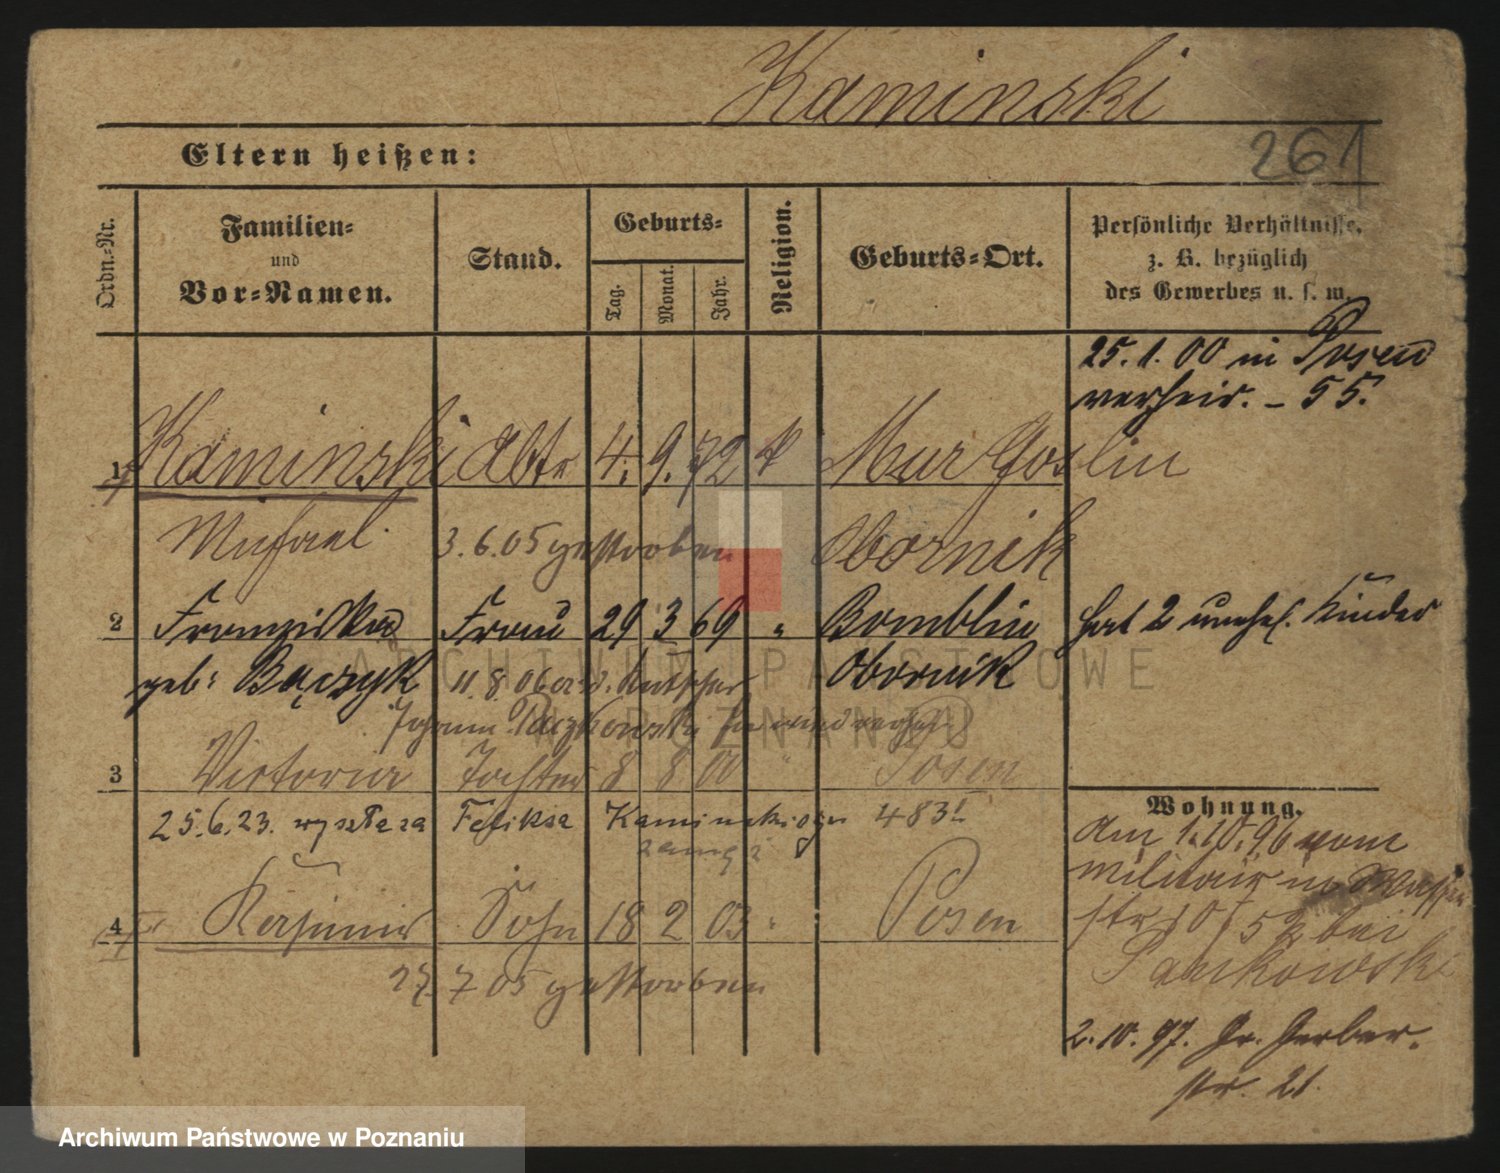 Kaminski
261
Eltern heißen:
Ordn.-Nr.
Familien-
und
Vor-Namen.
Stand.
Geburts-
Tag.
Monat.
Jahr.
Religion.
Geburts-Ort.
Persönliche Verhältnisse,
z. B. bezüglich
des Gewerbes u. s. w.
25. 1. 00 in Posen
verheir. – 55.
1 Kaminski Abtr 4. 9. 72 k Mur Goslin
Michael 3. 6. 05 gestorben Obornik
2 Franziska Frau 29 3 69 " Bomblin hat 2 unehel. Kinder
geb: Bączyk 11. 8. 06 Kutscher Obornik
Johann
3 Victoria Tochter 8 8 00 " Posen
25. 6. 23. wyszła za Feliksa Kamińskiego 483
4 Kasimir Sohn 18 2 03 " Posen
27. 7 05 gestorben
Wohnung.
Am 1. 10. 96 vom
Militair in
str 10 / 52 bei
Jankowski
2. 10. 97. Gr. Gerber-
str. 21.
ARCHIWUM PAŃSTWOWE
W POZNANIU
Archiwum Państwowe w Poznaniu